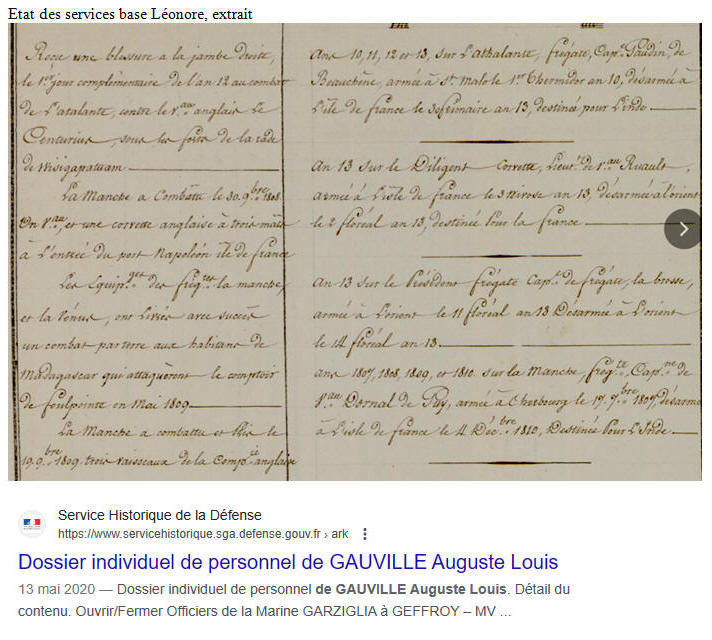 Etat des services base Léonore, extrait
Reçu une blessure a la jambe droite,
le 1er jour complémentaire de l'an 12 au combat
de L'atalante, contre le Vau anglais Le
Centurius, sous les forts de la rade
de Wisigapatuam
La Manche a Combattu le 30 9bre 1808
Un Vau, et une corvette anglaise à trois mats
à L'entrée du port Napoléon île de france
Les Equipges des frégtes la manche,
et la Vénus, ont Livrés avec succès
un combat par terre aux habitans de
Madagascar qui attaquèrent le comptoir
de foulpointe en Mai 1809
La Manche a combattu et Pris le
19 9bre 1809 trois vaisseaux de la Compie anglaise
Ans 10, 11, 12 et 13, sur L'athalante, frégate, Cape Gaudin de
Beauchène, armée à St Malo le 1er Thermidor an 10, désarmée à
L'ile de france le 3 frimaire an 13, destinée pour L'inde
An 13 sur le Diligent Corvette, Lieut. de Vau Ruault,
armée à L'isle de france le 3 Nivose an 13, désarmée a l'orient
le 2 floréal an 13, destinée Pour la france
An 13 sur le Président frégate Cape de frégate, la brosse,
armée à L'orient le 11 floréal an 13 Désarmée à L'orient
le 14 floréal an 13
ans 1807, 1808, 1809, et 1810 sur la Manche, frégte, Capne de
Vau Dornal de Guy, armée à Cherbourg le 17 7bre 1807, désarmée
à L'isle de france le 4 Décbre 1810, Destinée Pour L'Inde
Service Historique de la Défense
https://www.servicehistorique.sga.defense.gouv.fr › ark
Dossier individuel de personnel de GAUVILLE Auguste Louis
13 mai 2020 — Dossier individuel de personnel de GAUVILLE Auguste Louis. Détail du
contenu. Ouvrir/Fermer Officiers de la Marine GARZIGLIA à GEFFROY – MV ...